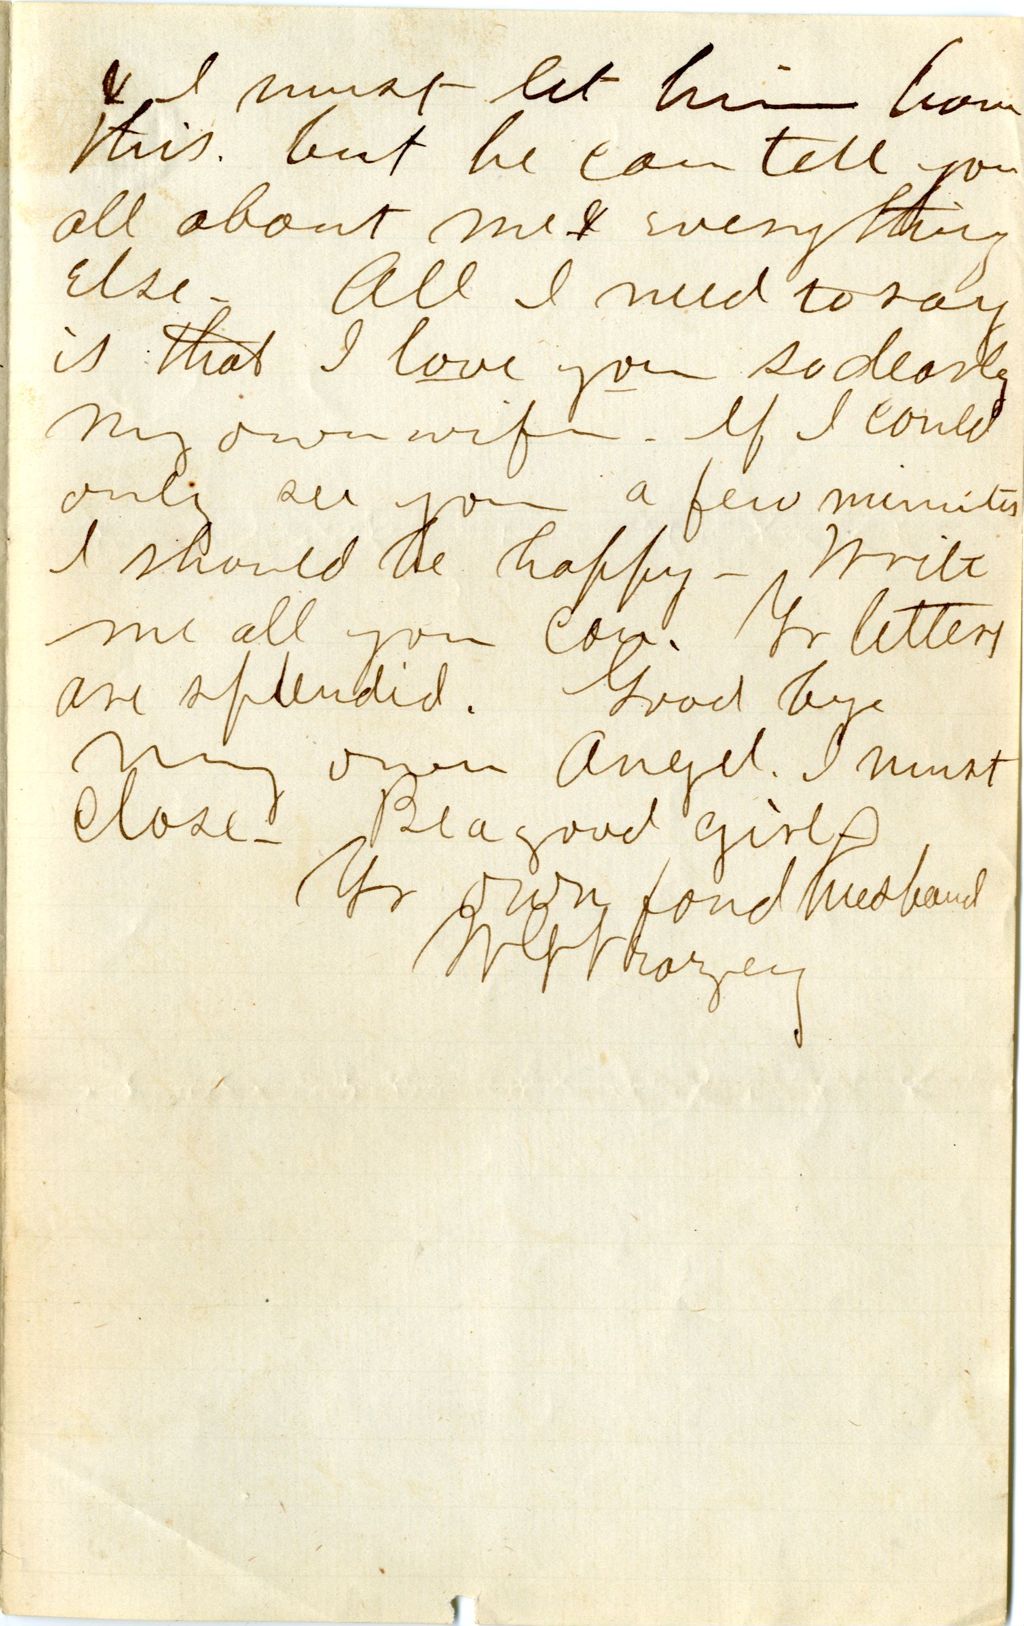 & I must let him have
this. but he can tell you
all about me & everything
Else - All I need to say
is that I love you so dearly
my own wife - If I could
only see you a few minutes
I should be happy - Write
me all you can. Yr letters
are splendid. Good bye
my own Angel. I must
Close - Be a good girl
Yr own fond husband